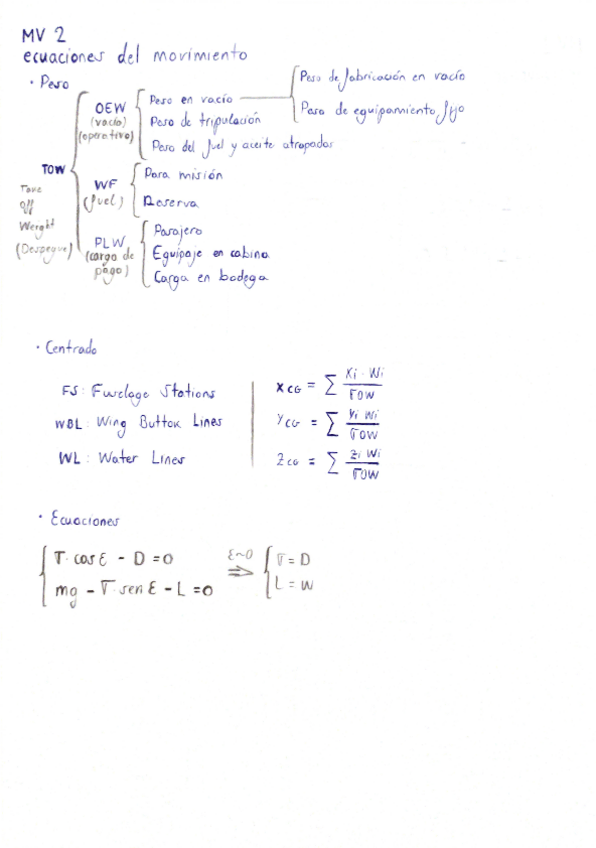 MV 2
ecuaciones del movimiento
· Peso
TOW
Take
Off
Weight
(Despegue)
OEW
(vacío)
(operativo)
Peso en vacío
Peso de fabricación en vacío
Peso de equipamiento fijo
Peso de tripulación
Peso del fuel y aceite atrapados
WF
(fuel)
Para misión
Reserva
PLW
(carga de
pago)
Pasajero
Equipaje en cabina
Carga en bodega
· Centrado
FS: Fuselage Stations
WBL: Wing Buttok Lines
WL: Water Lines
XCG = ∑ Xi · Wi / TOW
YCG = ∑ Yi Wi / TOW
ZCG = ∑ Zi Wi / TOW
· Ecuaciones
T · cos Ɛ - D = 0
mg - T · sen Ɛ - L = 0
Ɛ~0
⇒
T = D
L = W